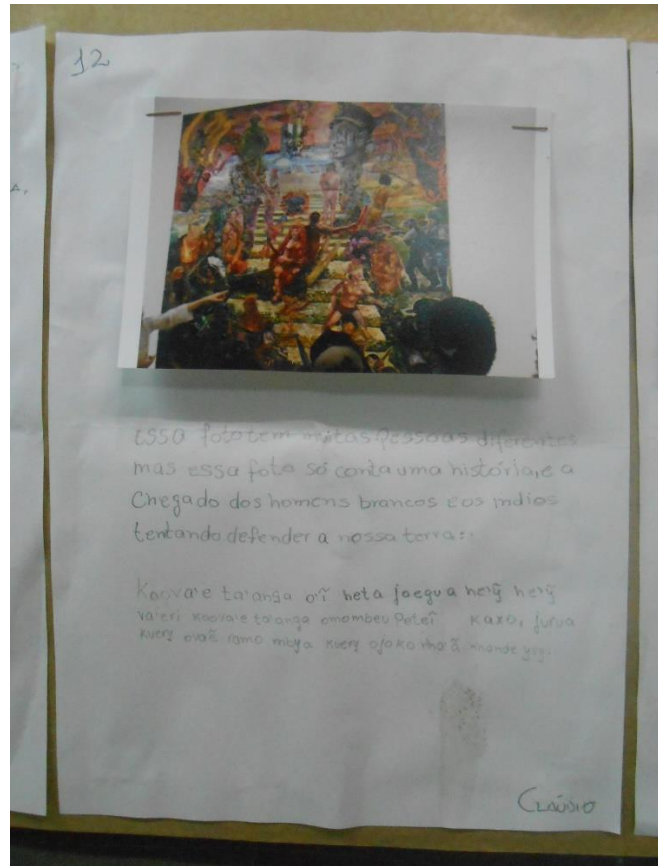 12
ESSA foto tem muitas Pessoas diferentes
mas essa foto só conta uma história, e a
Chegado dos homens brancos e os indios
tentando defender a nossa terra:
Koova'e ta'anga o'ĩ heta jaegua herỹ herỹ
va'eri koova'e ta'anga omombeu Peteĩ kaxo, jurua
kuery ovaẽ ramo mbya kuery ojoko nhande yvy.
CLÁUDIO